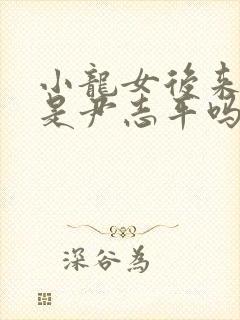 小龍女後来
是尹志平吗
深谷為